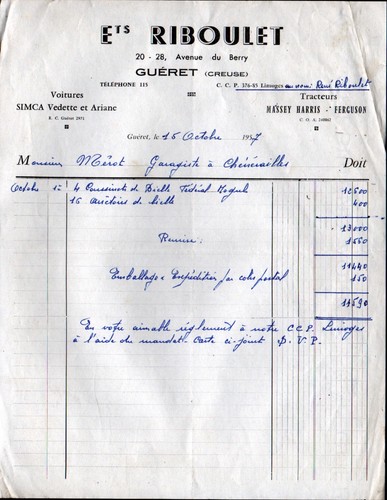 Ets RIBOULET
20 - 28, Avenue du Berry
GUÉRET (CREUSE)
TÉLÉPHONE 115
C. C. P. 376-85 Limoges au nom René Riboulet
Voitures
SIMCA Vedette et Ariane
R. C. Guéret 2971
Tracteurs
MASSEY HARRIS - FERGUSON
C. O. A.
Guéret, le 15 Octobre 1957
Monsieur Mérot Garagiste à Chénérailles Doit
Octobre 15 4 Coussinets de Bielle Federal Mogul 12600
16 arrêtoirs de bielle 400
13000
Remise: 1560
11440
Emballage & Expédition par colis postal 150
11590
En votre aimable règlement à notre C.C.P. Limoges
à l'aide du mandat-Carte ci-joint S.V.P.